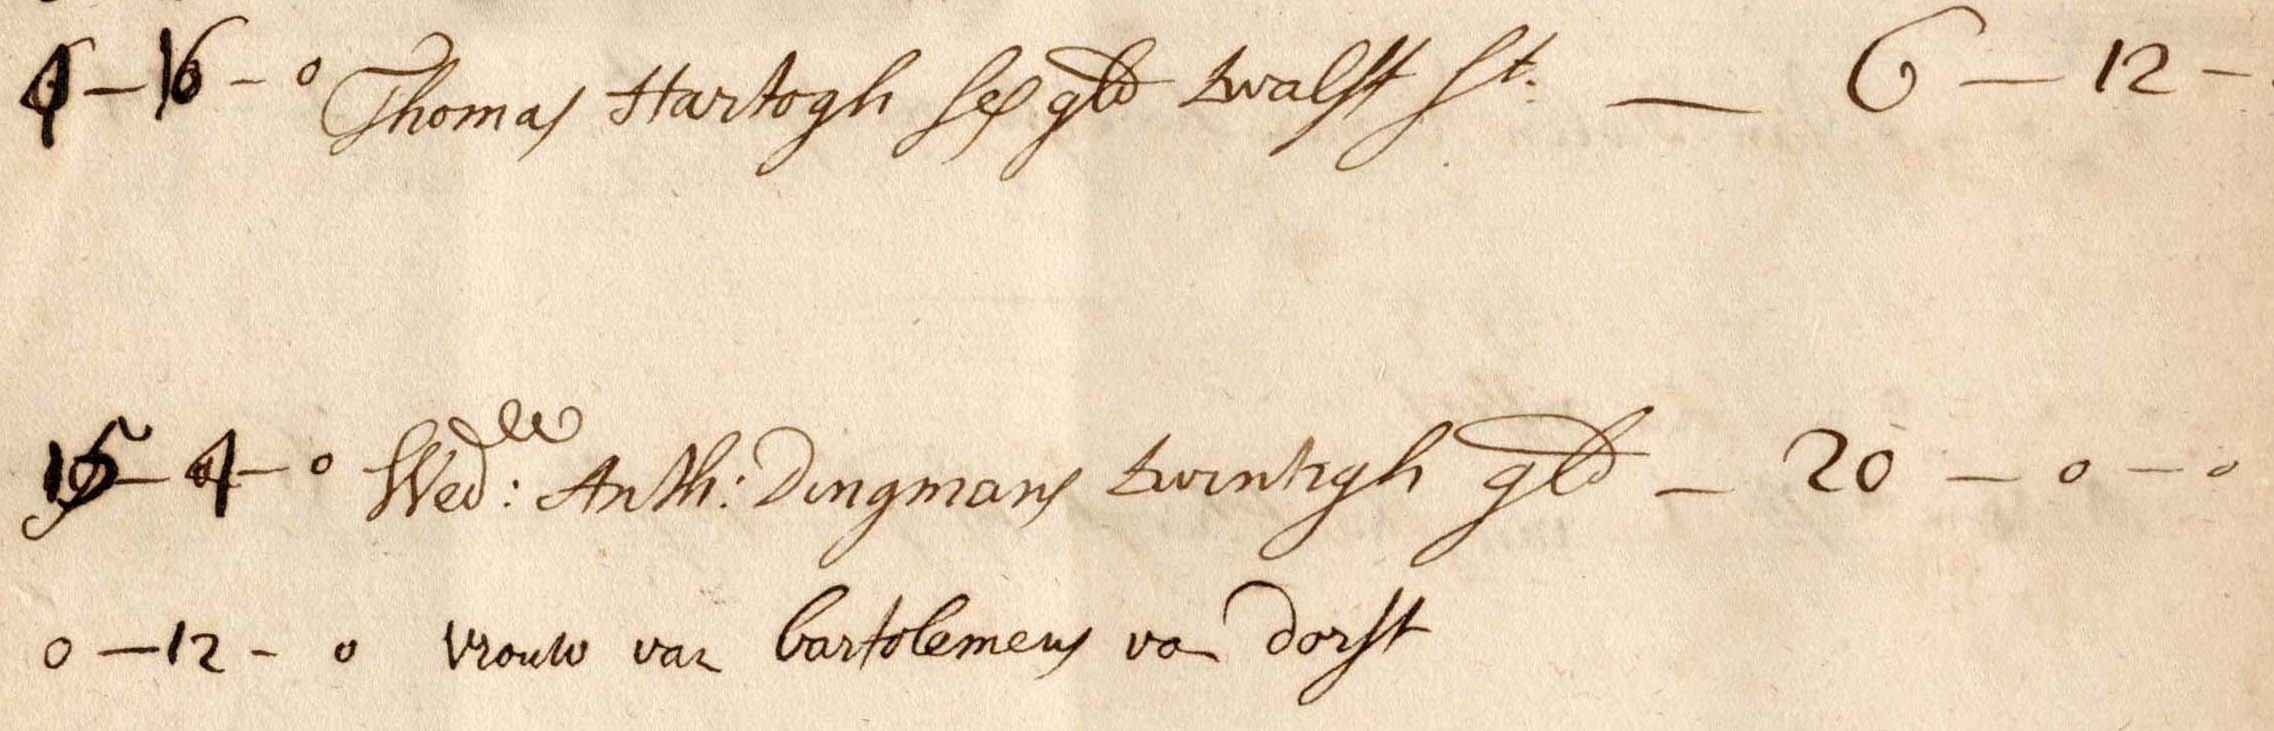 4 - 16 - 0 Thomas Hartogh ses gld twalff st. — 6 — 12 -
15 - 4 - 0 Wed: de Anth: Dingmans twintigh gld — 20 — 0 — 0
0 - 12 - 0 vrouw van bartolemeus va dorst